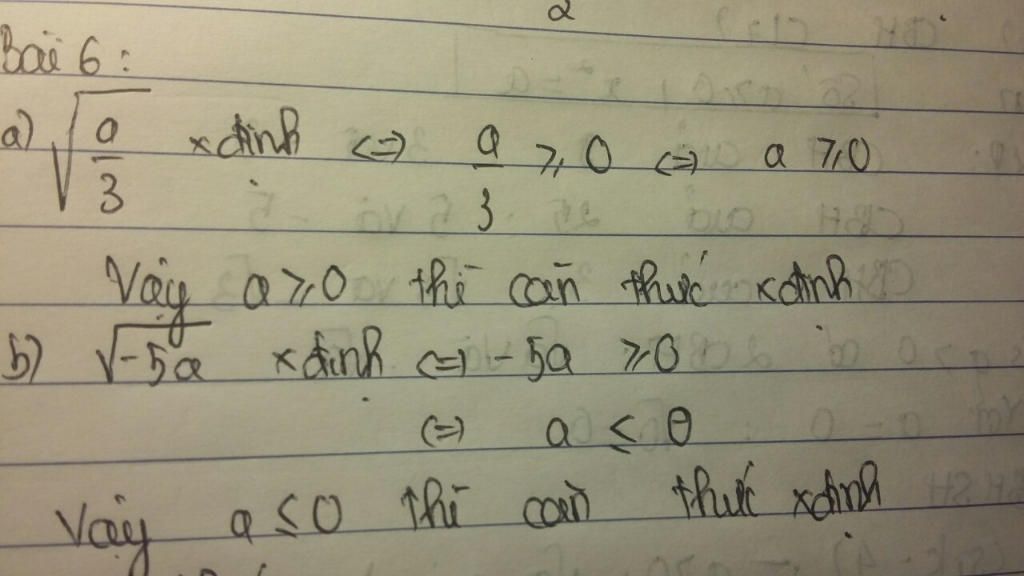 2
Bài 6:
a) √(a/3) xđịnh <=> a/3 ≥ 0 <=> a ≥ 0
Vậy a ≥ 0 thì căn thức xđịnh
b) √-5a xđịnh <=> -5a ≥ 0
<=> a ≤ 0
Vậy a ≤ 0 thì căn thức xđịnh